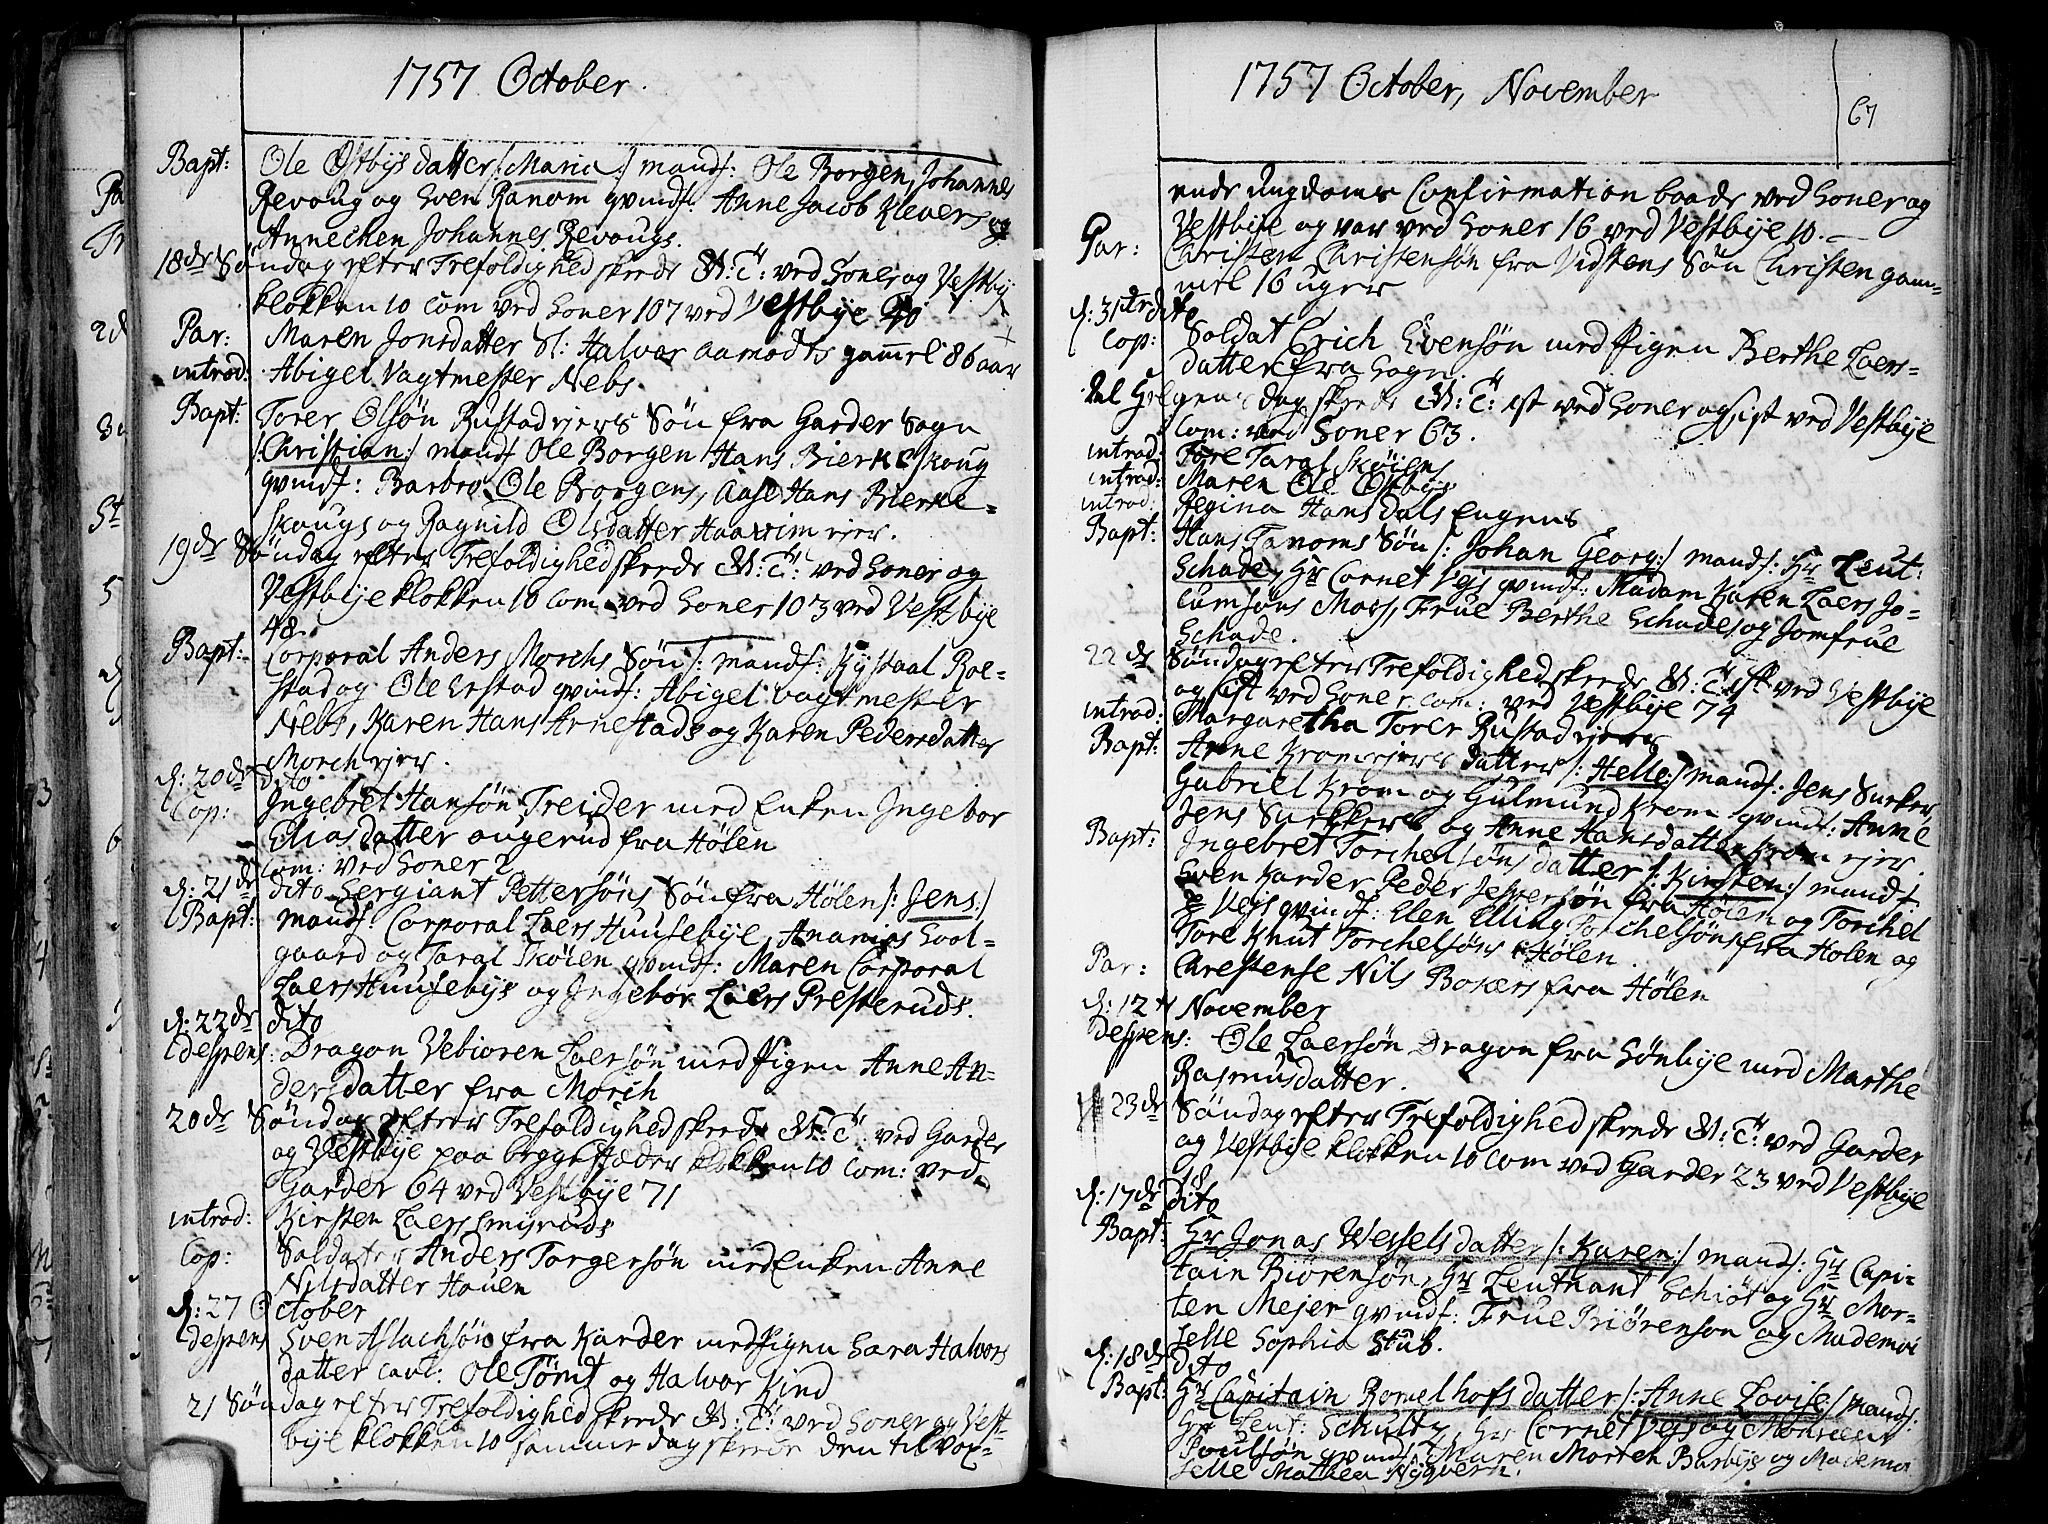 1757 October.
Bapt: Ole Østbÿs datter /: Maria :/ mandf: Ole Borgen, Johannes
Revoug og Sven Ranom qvindf: Anne Jacob Klevers og
Annechen Johannes Revougs.
18de Søndag efter Trefoldighed skeede G: T: ved Soner og Vestby
klokken 10 Com ved Soner 107 ved Vestbÿe
Par: Maren Jonsdatter Sl: Halvor Aamodts gammel 86 aar
introd: Abigel Vagtmester Nebs.
Bapt: Torer Olsøn Rustadejers Søn fra Garder Sogn
/: Christian :/ mandf Ole Borgen Hans Bierkeskoug
qvindf: Barbro Ole Borgens, Aase Hans Bierke-
skougs og Ragnild Olsdatter Haaveim ejer.
19de Søndag efter Trefoldighed skeede G: T: ved Soner og
Vestbÿe klokken 10 Com ved Soner 103 ved Vestbÿe
48.
Bapt: Corporal Anders Morchs Søn /: mandf: Kystaal Roe-
stad og Ole Erstad qvindf: Abigel vagtmester
Nebs, Karen Hans Arnestads og Karen Pedersdatter
Morch ejer.
d: 20de dito
Cop: Ingebret Hansøn Treider med Enken Ingebor
Eliasdatter ougerud fra Hølen
Com: ved Soner 2
d: 21de dito Sergiant Pettersøns Søn fra Hølen /: Jens :/
Bapt: mandf: Corporal Laers Huusebÿe, Ananias Sool-
gaard og Taral Skøien qvindf: Maren Corporal
Laers Huusebÿs og Ingebor Laers Presteruds.
d: 22de dito
dispens: Dragon Vebioren Laersøn med Pigen Anne An-
dersdatter fra Morch
20de Søndag efter Trefoldighed skeede G: T: ved Garder
og Vestbÿe paa begge stæder klokken 10 Com: ved
Garder 64 ved Vestbÿe 71
introd: Kirsten Laers Smÿruds
Cop: Soldat Anders Torgersøn med Enken Anne
Nilsdatter Hauen
d: 27 October
dispens Sven Aslachsøn fra Karder med Pigen Sara Halvors
datter caut: Ole Tømt og Halvor Kind
21 Søndag efter Trefoldighed skeede G: T: ved Soner og Vest-
bÿe klokken 10 samme dag skeede den til vox-
1757 October, November
67
ende Ungdoms Confirmation baade ved Soner og
Vestbÿe og var ved Soner 16 ved Vestbÿe 10.
Par: Christen Christensøn fra Vidstens Søn Christen gam-
mel 16 uger
d: 31te dito
Cop: Soldat Erich Evensøn med Pigen Berthe Laers-
datter fra Sogn.
Al Helgens dag skeede G: T: ist ved Soner og sist ved Vestbÿe
Com: ved Soner 63.
introd: Tore Taral Skøiens
introd: Maren Ole Østbÿs
introd: Regina Hans Dals Eugens
Bapt: Hans Tanoms Søn /: Johan Georg :/ mandf: Hr Leut:
Schade, Hr Cornet Vejs qvindf: Madam Karen Laers Jo-
cumsøns Moss, Frue Berthe Schades og Jomfrue
Schade.
22de Søndag efter Trefoldighed skeede G: T: ist ved Vestbÿe
og sist ved Soner com: ved Vestbÿe 74
introd: Margaretha Torer Rustadejers
Bapt: Arne Kromejers datter /: Helle :/ mandf: Jens Surker,
Gabriel Krom og Gulmund Krom qvindf: Anne
Jens Surkkers og Anne Hansdatter Krom ejer.
Bapt: Ingebret Torchelsøns datter /: Kirsten :/ mandf
Sven Karder Peder Jespersøn fra Hølen og Torchel
Vejs qvindf: Elen Elling Torchelsøns fra Hølen og
Tore Knut Torchelsøns Hølen.
Par: Chrestense Nils Bokers fra Hølen
d: 12te November
dispens: Ole Laersøn Dragon fra Sønbÿe med Marthe
Rasmusdatter.
23de Søndag efter Trefoldighed skeede G: T: ved Garder
og Vestbÿe klokken 10 Com ved Garder 23 ved Vestbÿe
18
d: 17de dito
Bapt: Hr Jonas Wessels datter /: Karen :/ mandf: Hr Capi-
tain Biørensøn, Hr Leutnant Schiøt og Hr Mor-
ten Mejer qvindf: Frue Biørenson og Mademoi
selle Sophia Stub.
d: 18de dito
Bapt: Hr Capitain Romelhofs datter /: Anne Lovise :/ mandf:
Hr Leut: Schultz, Hr Cornet Vejs og Monsieur
Poulsøn qvindf: Maren Morten Barbÿs og Mademoi
selle Mathea Nÿqvern.